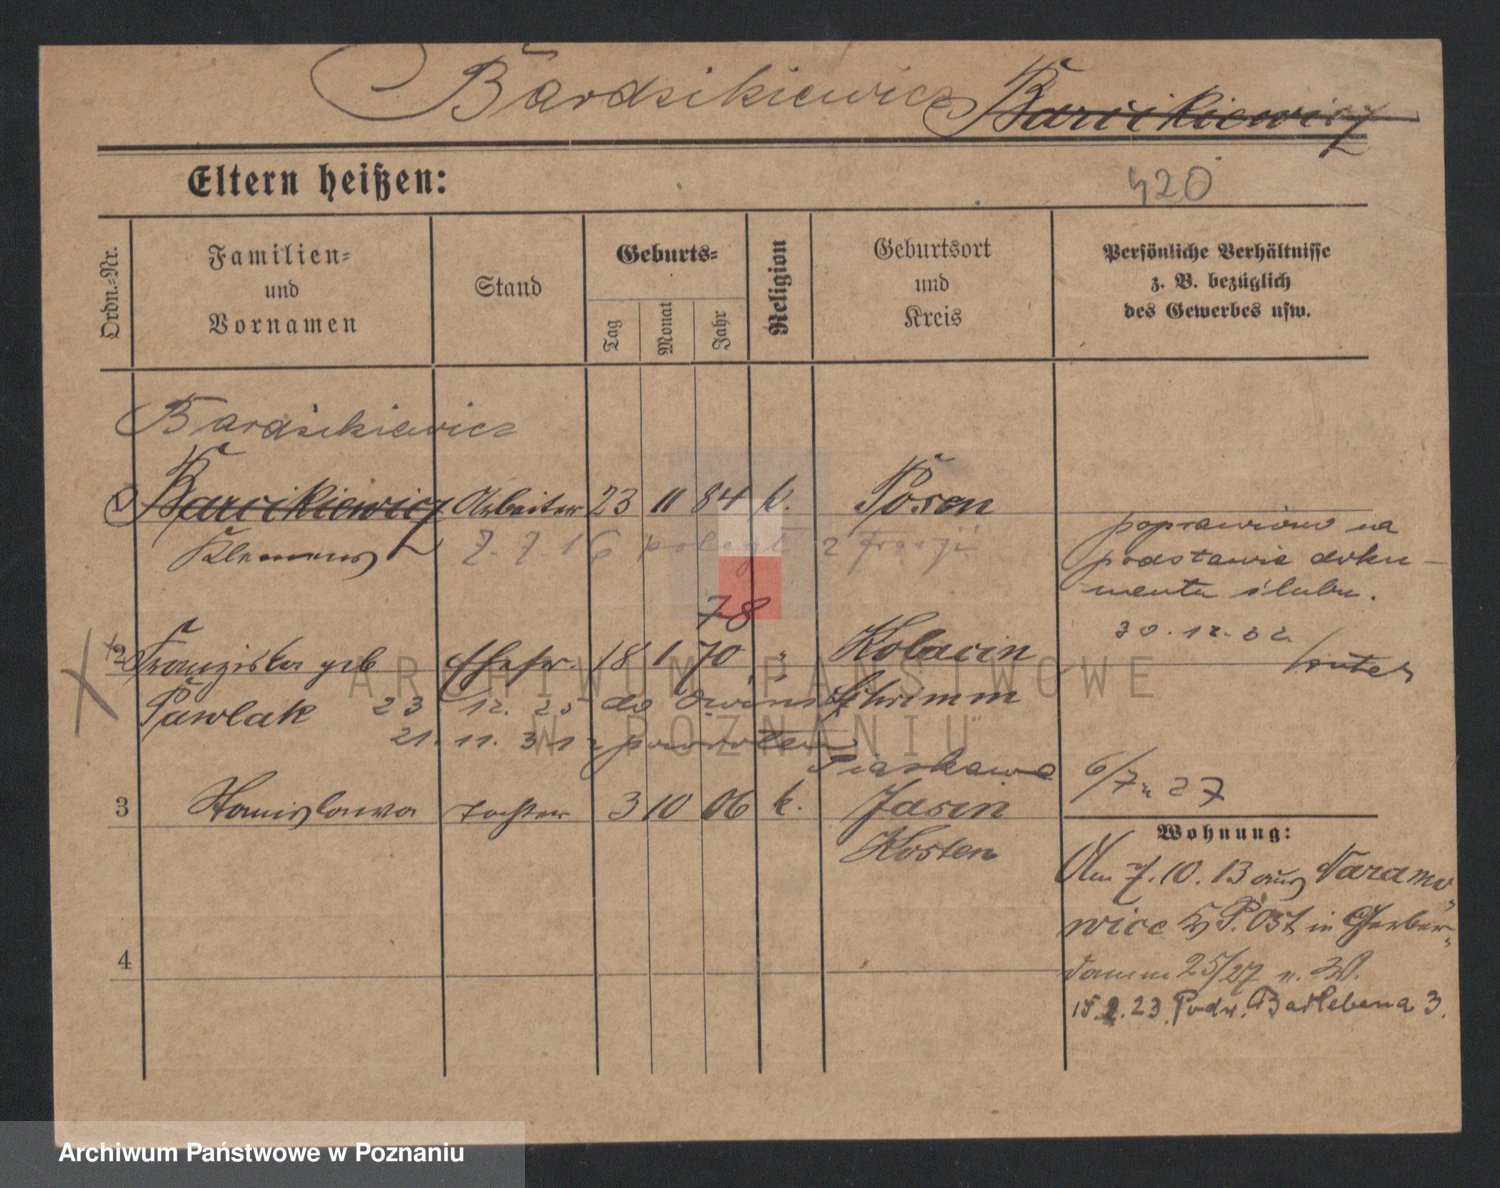 Bardzikiewicz Barcikiewicz
Eltern heißen:
420
Ordn.-Nr.
Familien-
und
Vornamen
Stand
Geburts-
Tag
Monat
Jahr
Religion
Geburtsort
und
Kreis
Persönliche Verhältnisse
z. B. bezüglich
des Gewerbes usw.
Bardzikiewicz
Barcikiewicz Arbeiter 23 11 84 k. Posen
Klemens 7. 7. 16 poległ z Francji
poprawiono na
podstawie doku-
mentu ślubu.
30. 12. 32.
78
2 Franziska geb Ehefr. 18 1 70 " Kolacin
Pawlak 23 12. 25 do Owinsk Schrimm
21. 11. 31 z powrotem
Piaskawa
6/7 27
3 Stanislawa Tochter 3 10 06 k. Jasin
Kosten
Wohnung:
Am 7. 10. 13 aus Naramo-
wice P. Ost in Gerber-
damm 25/27 n. W.
15.2.23. Podw. Bartlebena 3.
4
ARCHIWUM PAŃSTWOWE
W POZNANIU
Archiwum Państwowe w Poznaniu